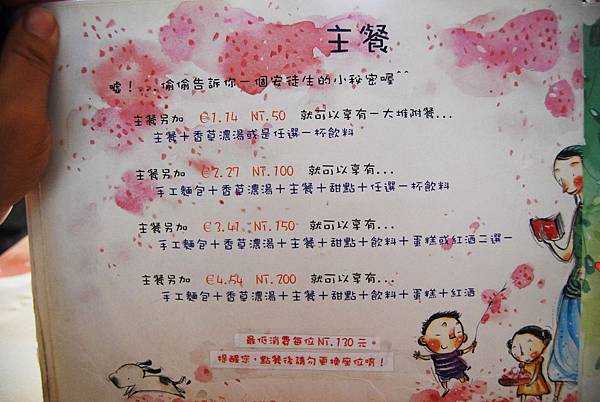 主餐
噓！...偷偷告訴你一個安徒生的小秘密喔^^
主餐另加 €1.14 NT.50 就可以享有一大堆附餐...
主餐＋香草濃湯或是任選一杯飲料
主餐另加 €2.27 NT.100 就可以享有...
手工麵包＋香草濃湯＋主餐＋甜點＋任選一杯飲料
主餐另加 €3.41 NT.150 就可以享有...
手工麵包＋香草濃湯＋主餐＋甜點＋飲料＋蛋糕或紅酒二選一
主餐另加 €4.54 NT.200 就可以享有...
手工麵包＋香草濃湯＋主餐＋甜點＋飲料＋蛋糕＋紅酒
最低消費每位NT.130元。
提醒您，點餐後請勿更換座位唷！